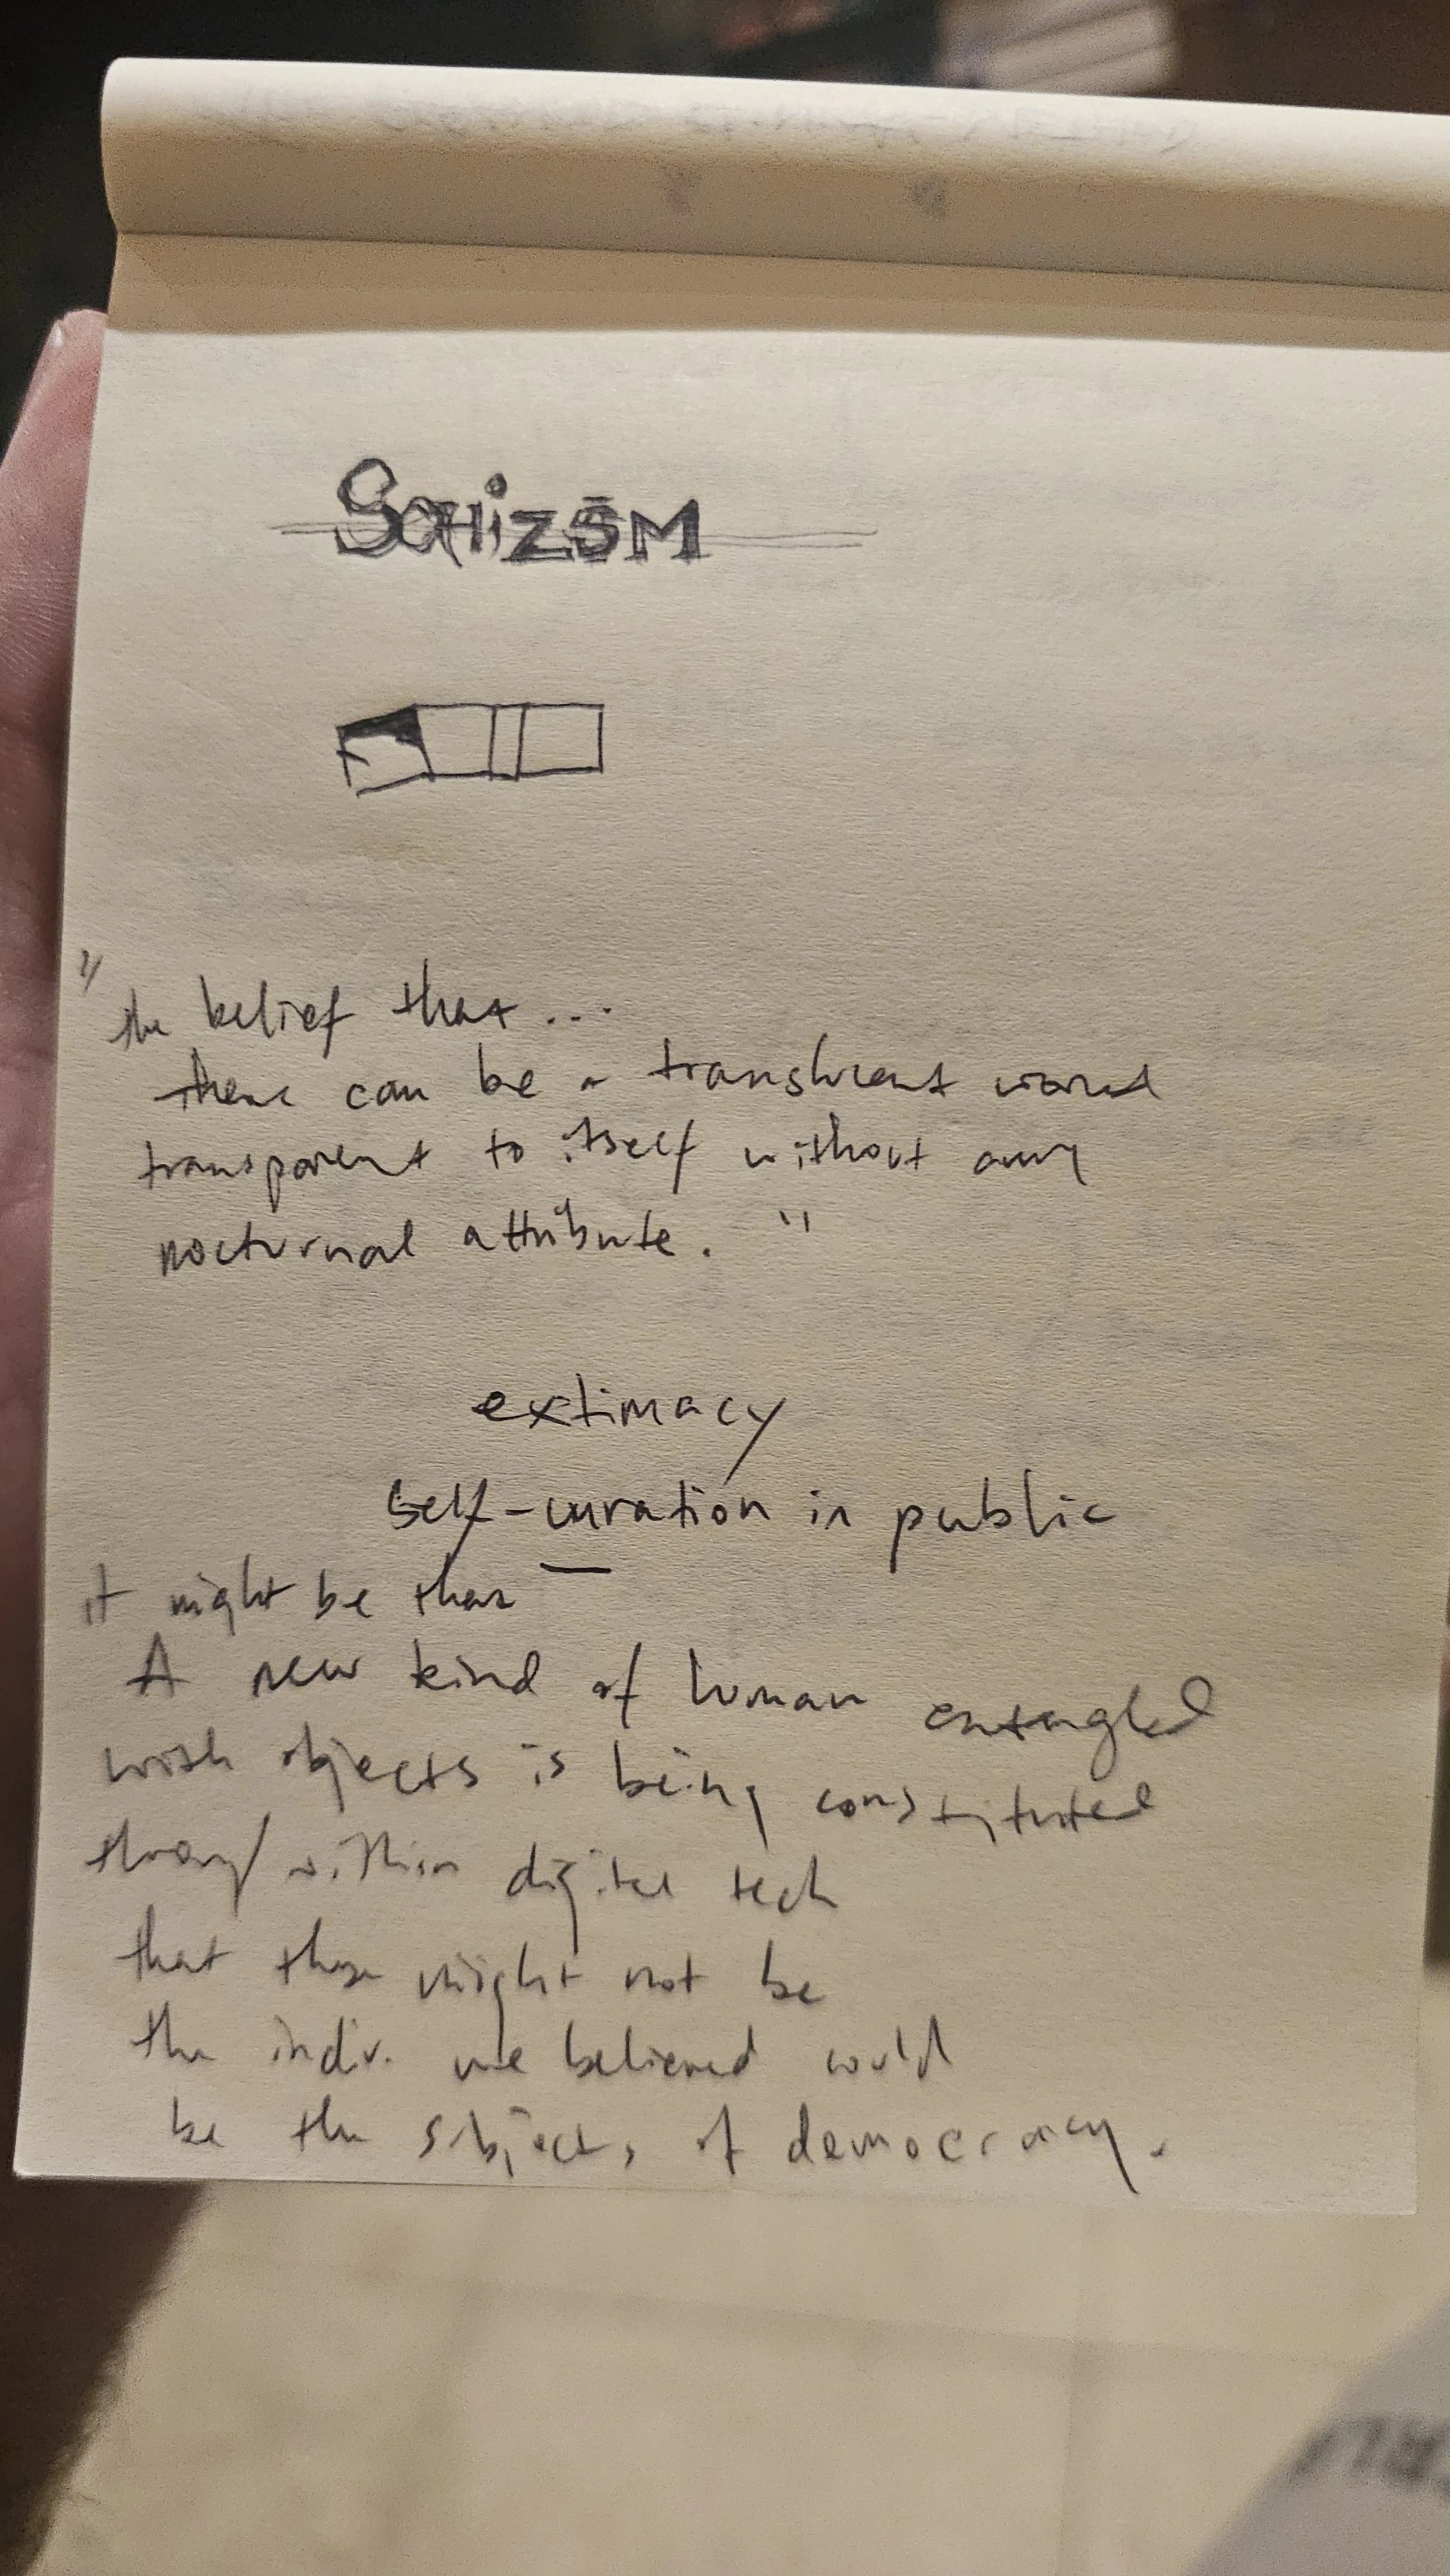 SCHIZSM
"the belief that...
there can be a translucent world
transparent to itself without any
nocturnal attribute."
extimacy
self-curation in public
it might be that
A new kind of human entangled
with objects is being constituted
through/within digital tech
that these might not be
the indiv. we believed would
be the subjects of democracy.